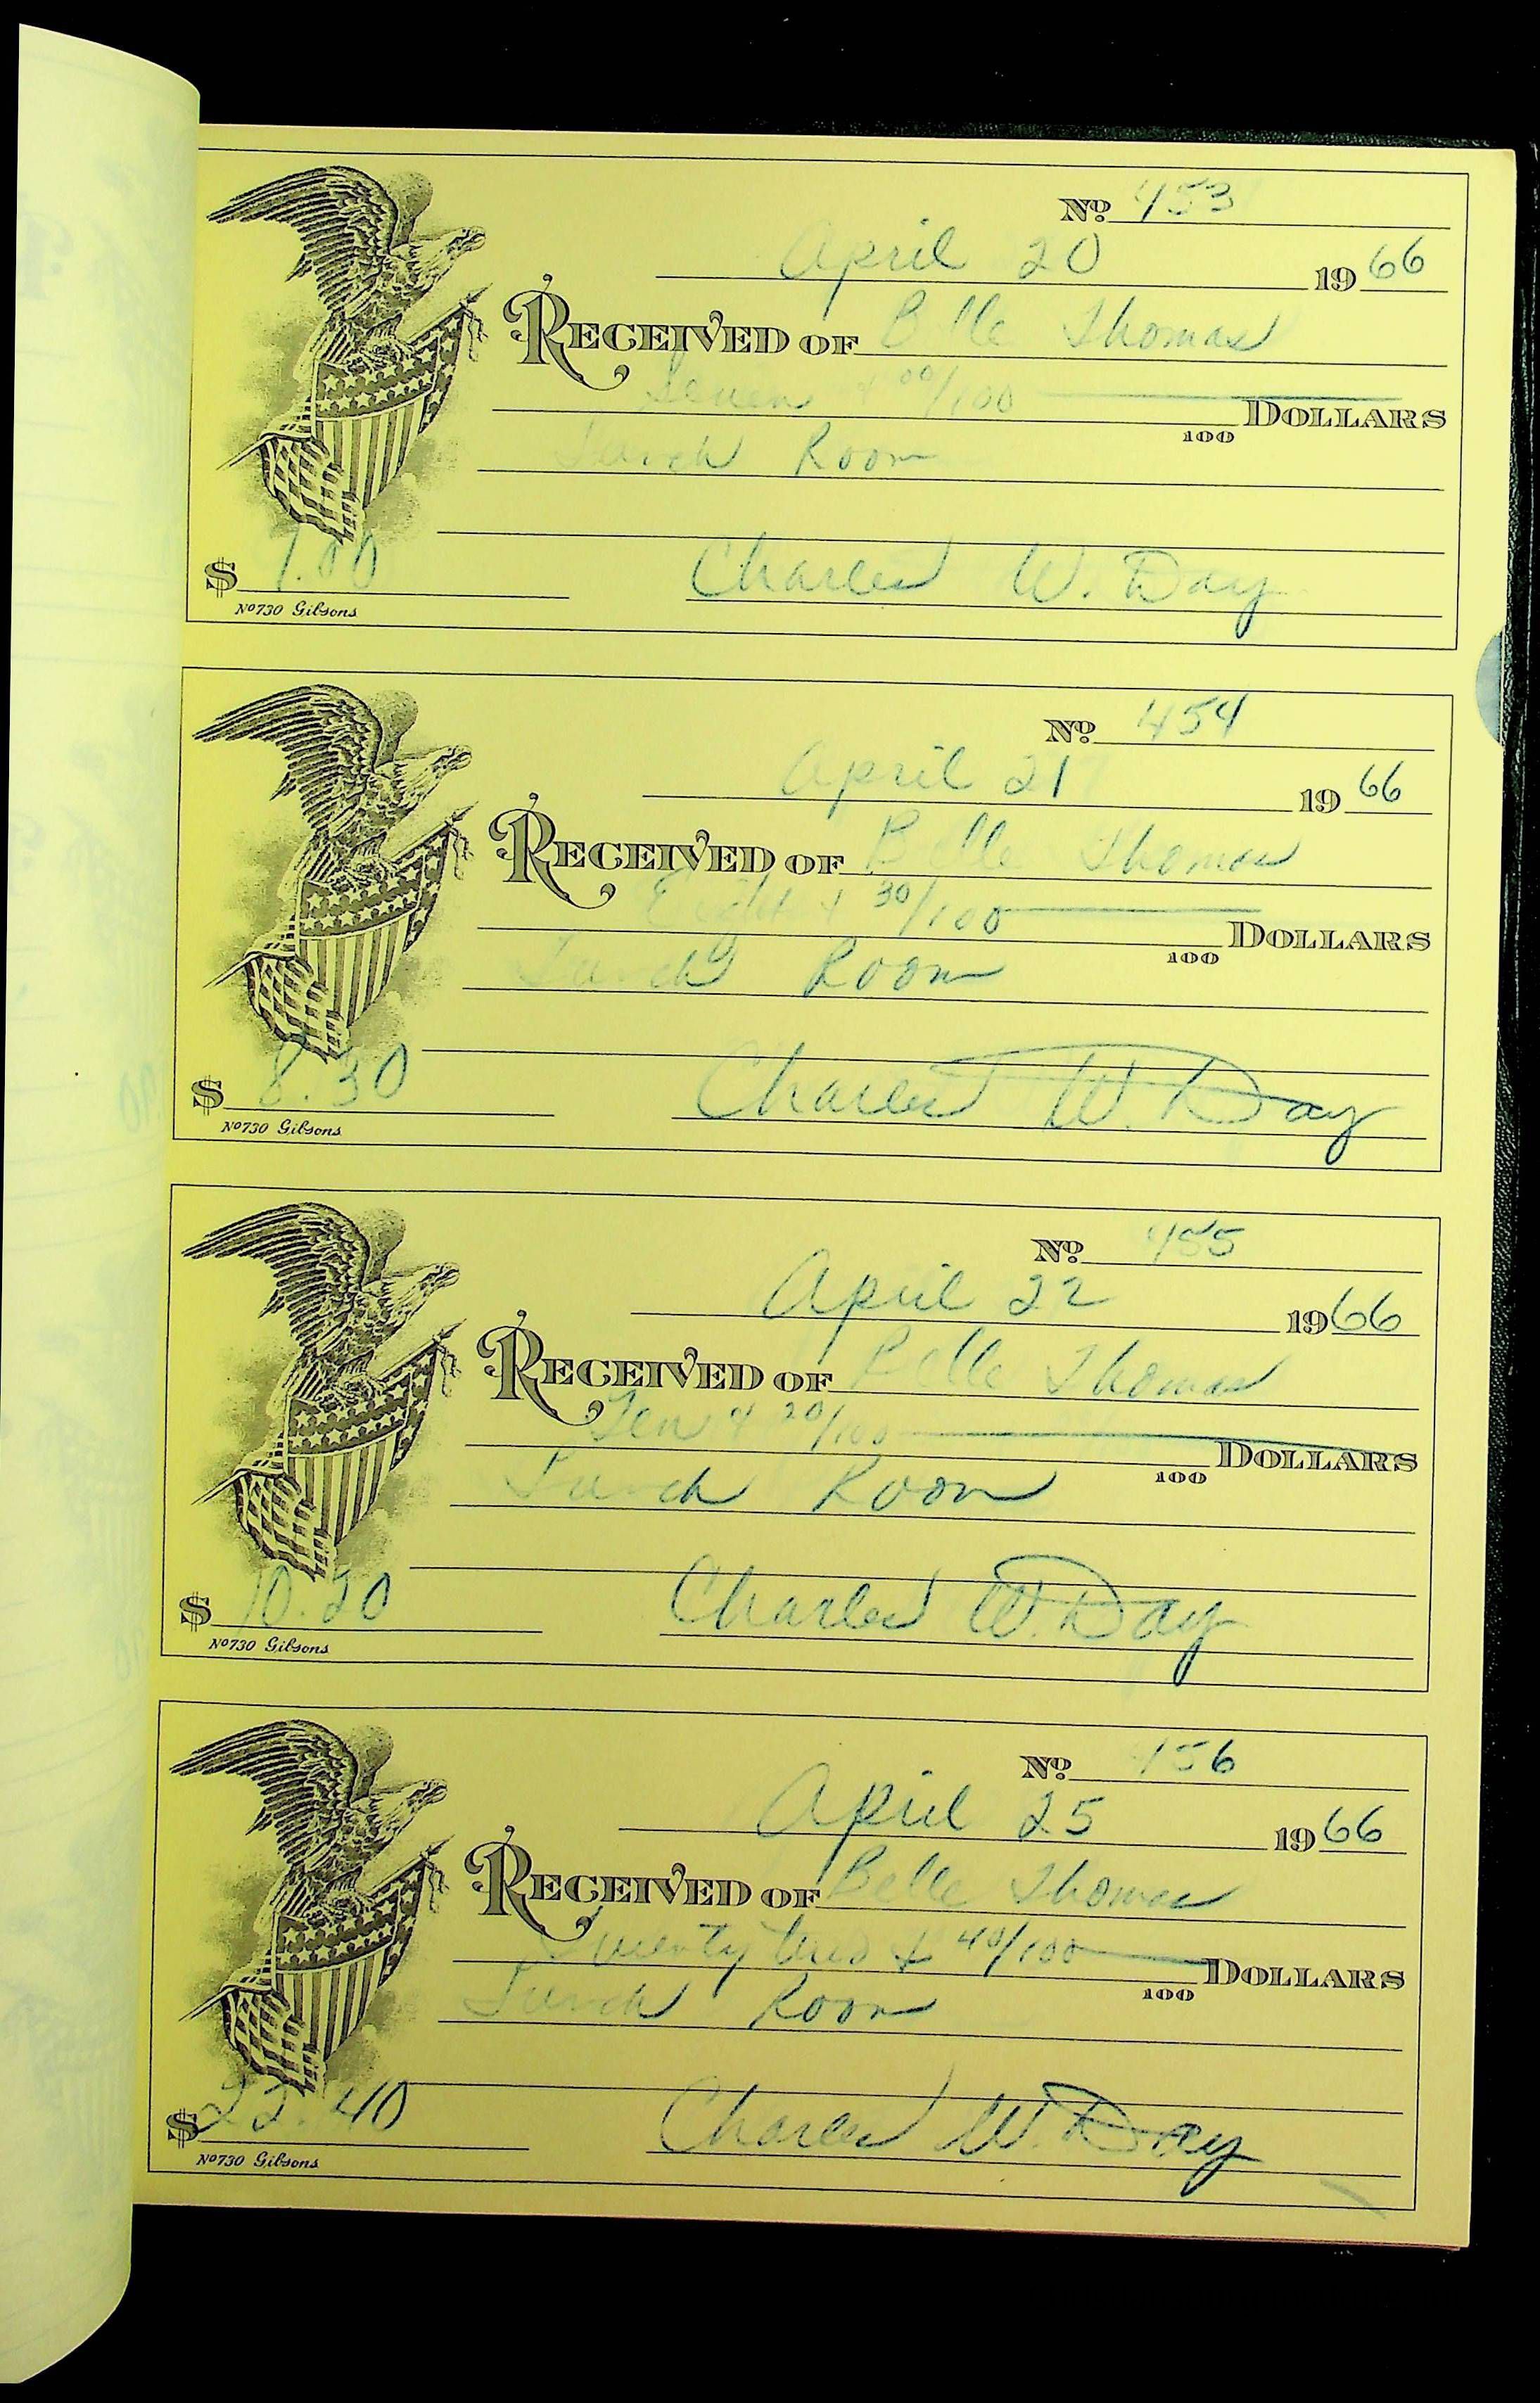 No. 453
April 20 1966
RECEIVED OF Belle Thomas
Seven & 00/100 DOLLARS
100
Lunch Room
$ 7.00 Charles W. Day
No 730 Gibsons
No. 454
April 21 1966
RECEIVED OF Belle Thomas
Eight & 30/100 DOLLARS
100
Lunch Room
$ 8.30 Charles W. Day
No 730 Gibsons
No. 455
April 22 1966
RECEIVED OF Belle Thomas
Ten & 20/100 DOLLARS
100
Lunch Room
$ 10.20 Charles W. Day
No 730 Gibsons
No. 456
April 25 1966
RECEIVED OF Belle Thomas
Twenty two & 40/100 DOLLARS
100
Lunch Room
$ 22.40 Charles W. Day
No 730 Gibsons